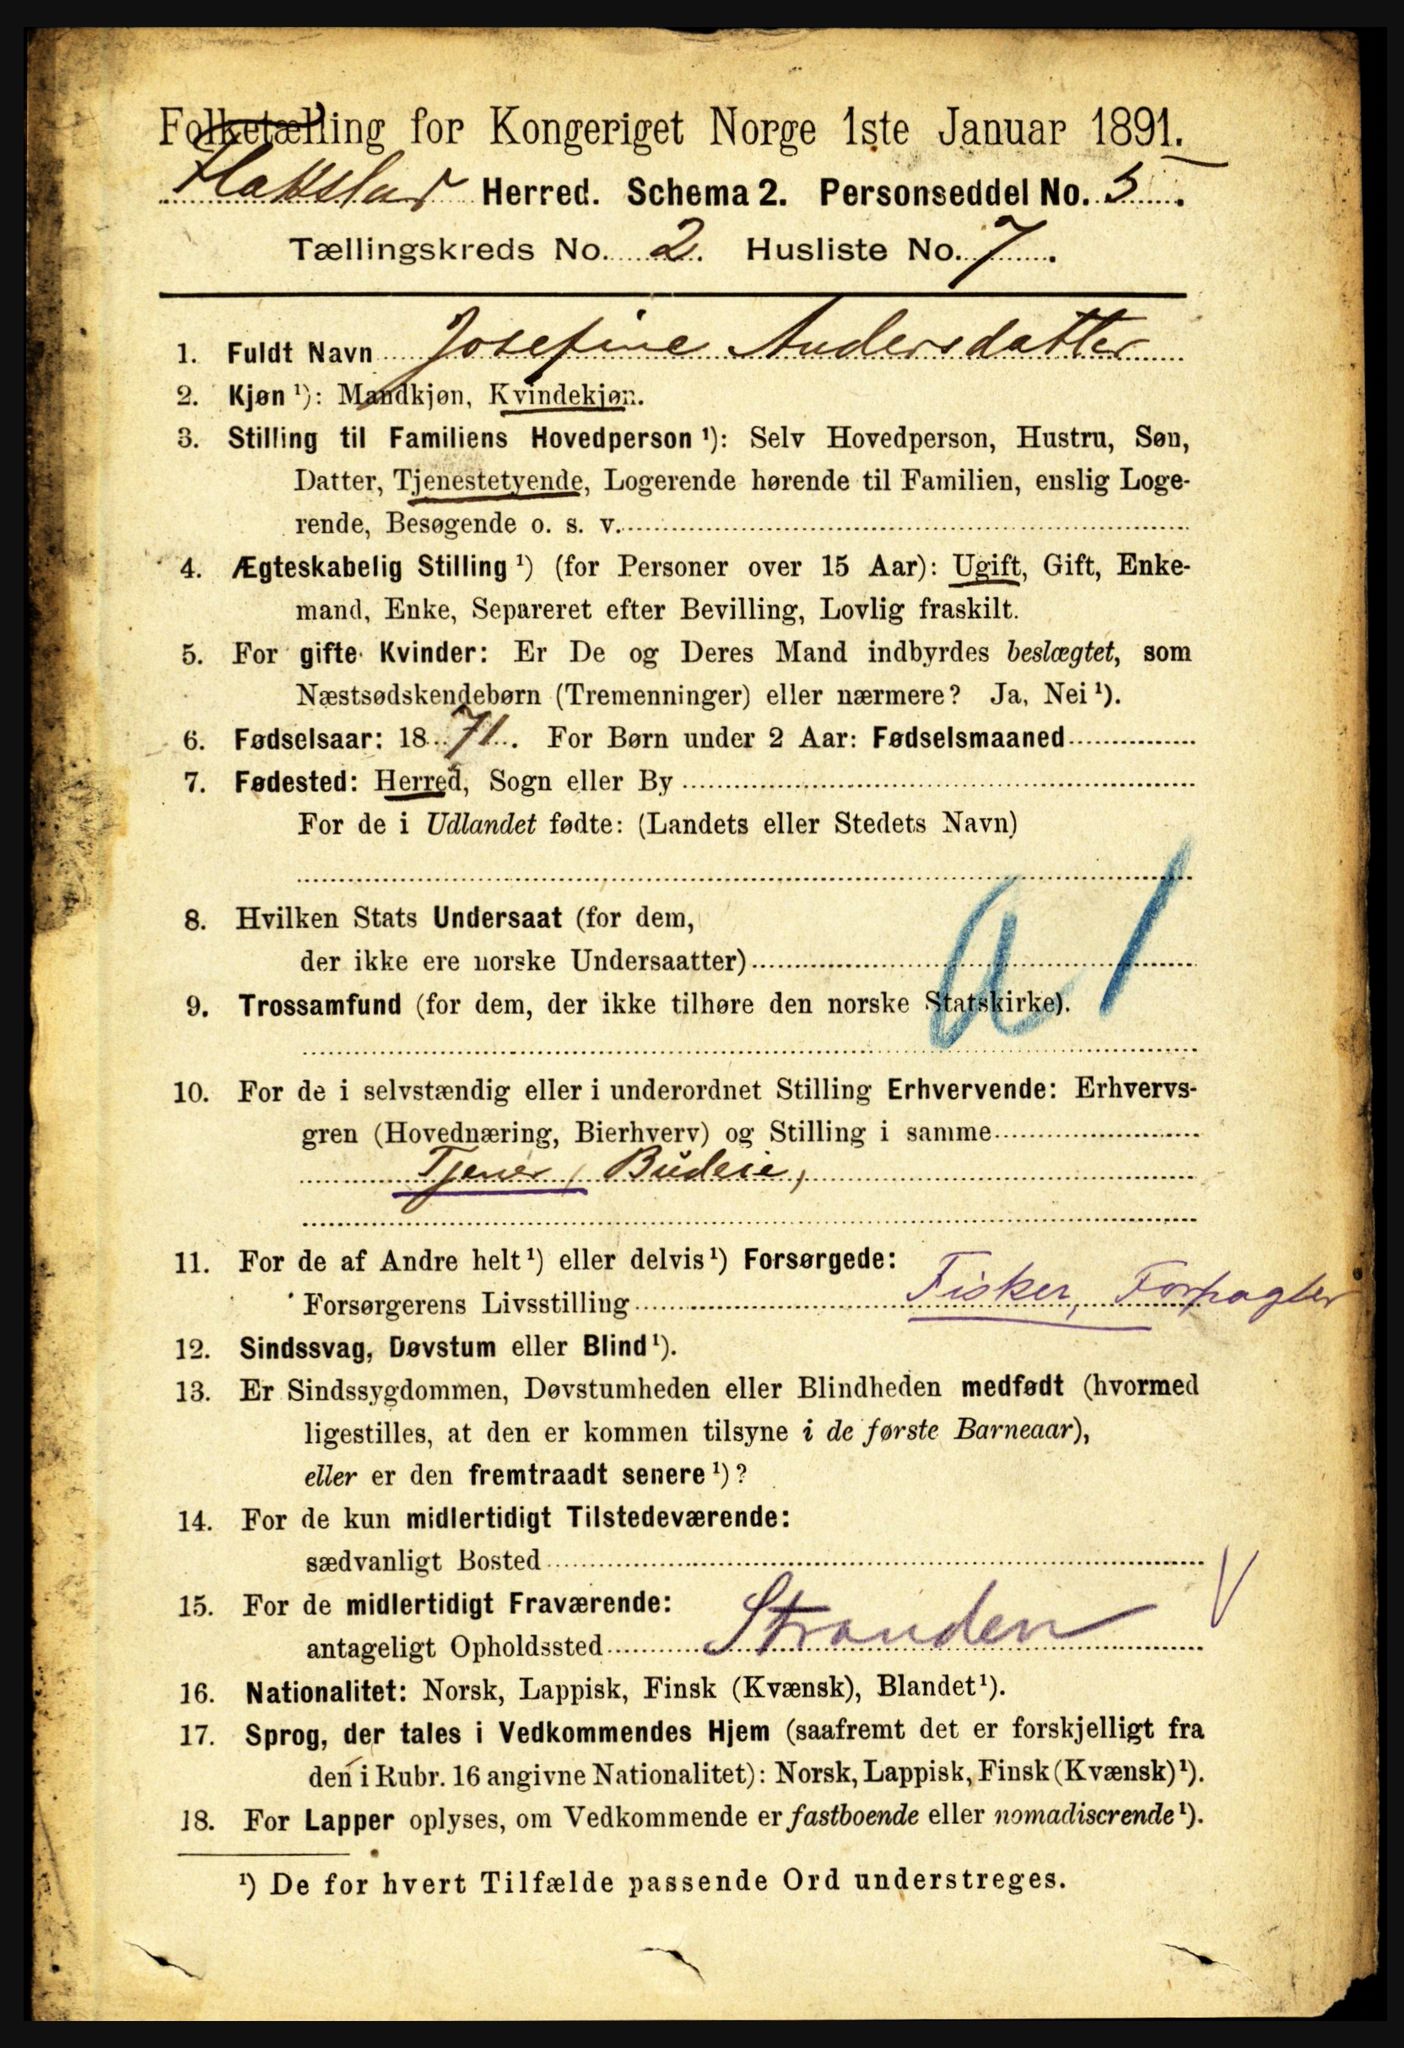 Folketælling for Kongeriget Norge 1ste Januar 1891.
Herred. Schema 2. Personseddel No. 5.
Tællingskreds No. 2. Husliste No. 7.
1. Fuldt Navn Josefine Andersdatter
2. Kjøn ¹): Mandkjøn, Kvindekjøn.
3. Stilling til Familiens Hovedperson ¹): Selv Hovedperson, Hustru, Søn,
Datter, Tjenestetyende, Logerende hørende til Familien, enslig Loge-
rende, Besøgende o. s. v.
4. Ægteskabelig Stilling ¹) (for Personer over 15 Aar): Ugift, Gift, Enke-
mand, Enke, Separeret efter Bevilling, Lovlig fraskilt.
5. For gifte Kvinder: Er De og Deres Mand indbyrdes beslægtet, som
Næstsødskendebørn (Tremenninger) eller nærmere? Ja, Nei ¹).
6. Fødselsaar: 1871. For Børn under 2 Aar: Fødselsmaaned
7. Fødested: Herred, Sogn eller By
For de i Udlandet fødte: (Landets eller Stedets Navn)
a 1
8. Hvilken Stats Undersaat (for dem,
der ikke ere norske Undersaatter)
9. Trossamfund (for dem, der ikke tilhøre den norske Statskirke).
10. For de i selvstændig eller i underordnet Stilling Erhvervende: Erhvervs-
gren (Hovednæring, Bierhverv) og Stilling i samme
Tjener, Budeie,
11. For de af Andre helt ¹) eller delvis ¹) Forsørgede:
Forsørgerens Livsstilling Fisker, Forpagter
12. Sindssvag, Døvstum eller Blind ¹).
13. Er Sindssygdommen, Døvstumheden eller Blindheden medfødt (hvormed
ligestilles, at den er kommen tilsyne i de første Barneaar),
eller er den fremtraadt senere ¹)?
14. For de kun midlertidigt Tilstedeværende:
sædvanligt Bosted
15. For de midlertidigt Fraværende:
antageligt Opholdssted Stranden
16. Nationalitet: Norsk, Lappisk, Finsk (Kvænsk), Blandet ¹).
17. Sprog, der tales i Vedkommendes Hjem (saafremt det er forskjelligt fra
den i Rubr. 16 angivne Nationalitet): Norsk, Lappisk, Finsk (Kvænsk) ¹).
18. For Lapper oplyses, om Vedkommende er fastboende eller nomadiserende ¹).
¹) De for hvert Tilfælde passende Ord understreges.